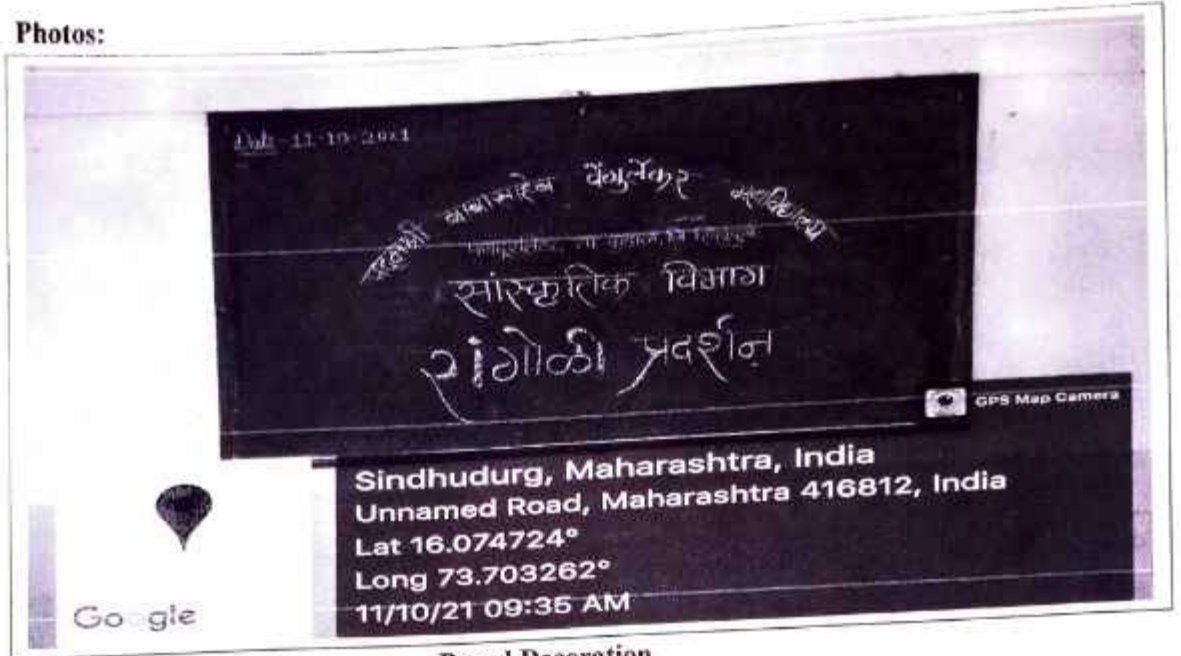 Photos:
Date - 11-10-2021
बाबासाहेब वेंगुर्लेकर महाविद्यालय
सांस्कृतिक विभाग
रांगोळी प्रदर्शन
GPS Map Camera
Sindhudurg, Maharashtra, India
Unnamed Road, Maharashtra 416812, India
Lat 16.074724°
Long 73.703262°
11/10/21 09:35 AM
Google
Decoration